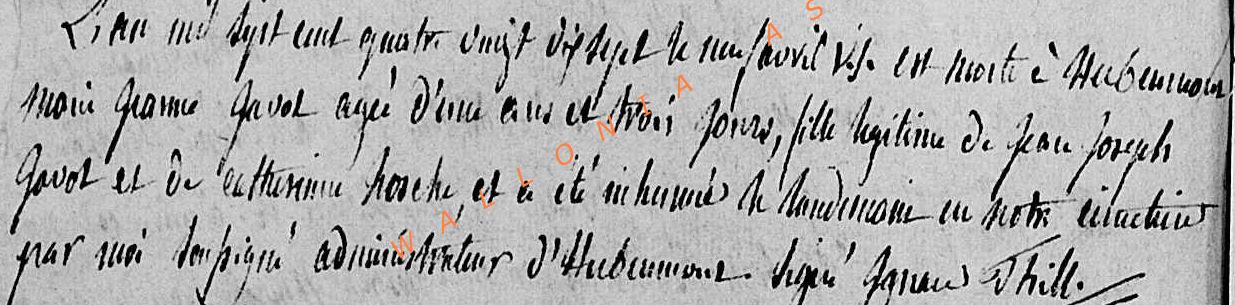 L'an mil sept cent quatre vingt dix sept le neuf avril v.s. est morte à Herbeumont
marie jeanne javot agée d'une ans et trois jours, fille legitime de jean joseph
javot et de catherinne hosche, et a été inhumée le landemain en notre cimetiere
par moi soussigné administrateur d'Herbeumont. signé Ignace Thill.
WALLONIA AS